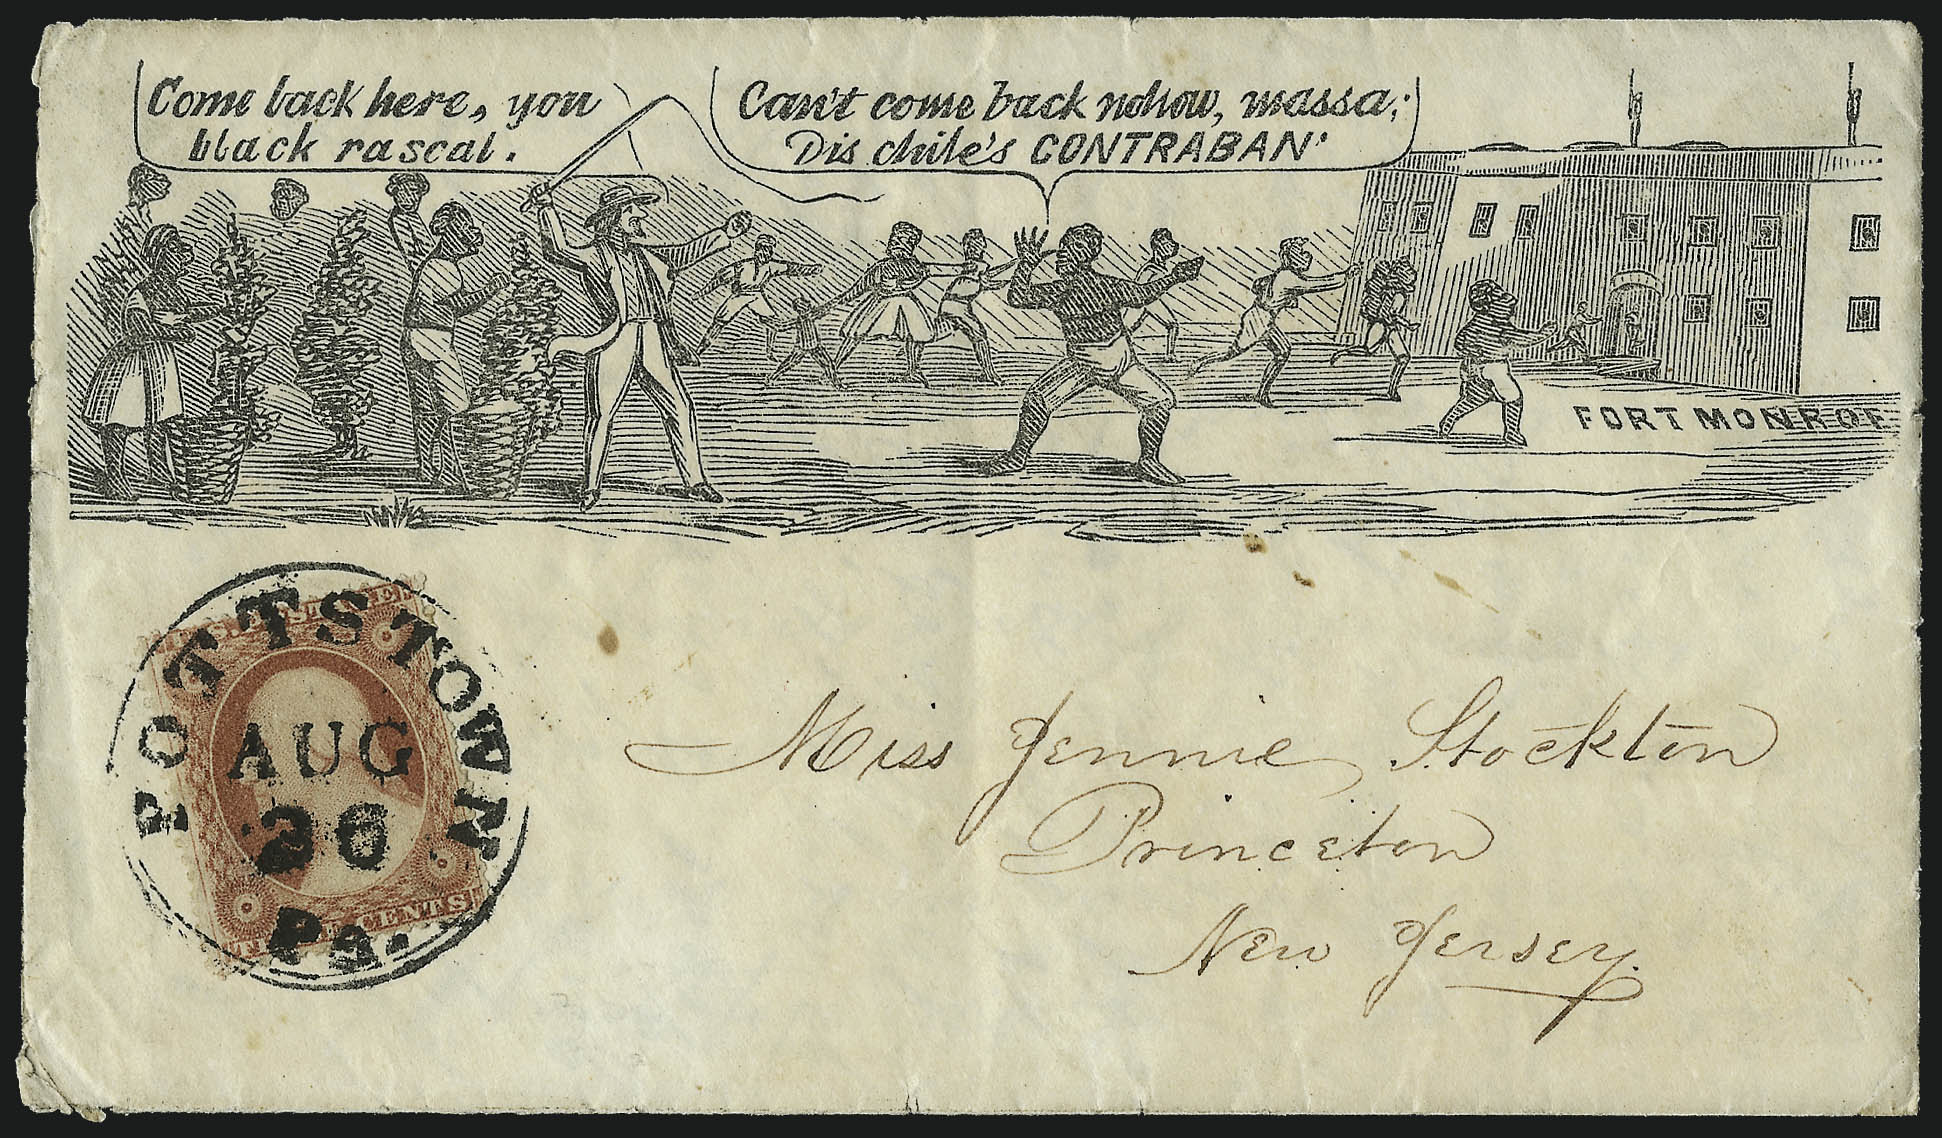 Come back here, you
black rascal.
Can't come back nohow, massa;
Dis chile's CONTRABAN'
FORT MONROE
POTTSTOWN
AUG
26
Pa.
CENTS
Miss Jennie Stockton
Princeton
New Jersey.